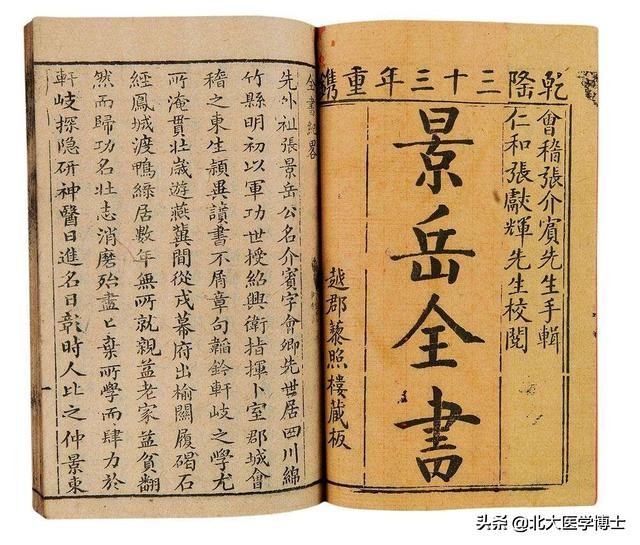 乾隆三十三年重鐫
會稽張介賓先生手輯
仁和張獻輝先生校閱
景岳全書
越郡藜照樓藏板
全書紀畧
先外祖張景岳公名介賓字會卿先世居四川綿
竹縣明初以軍功世授紹興衛指揮卜室郡城會
稽之東生頴異讀書不屑章句韜鈐軒岐之學尤
所淹貫壯歲遊燕冀間從戎幕府出榆關履碣石
經鳳城渡鴨緑居數年無所就親益老家益貧翻
然而歸功名壯志消磨殆盡匕棄所學而肆力於
軒岐探隐研神醫日進名日彰時人比之仲景東
头条 @北大医学博士